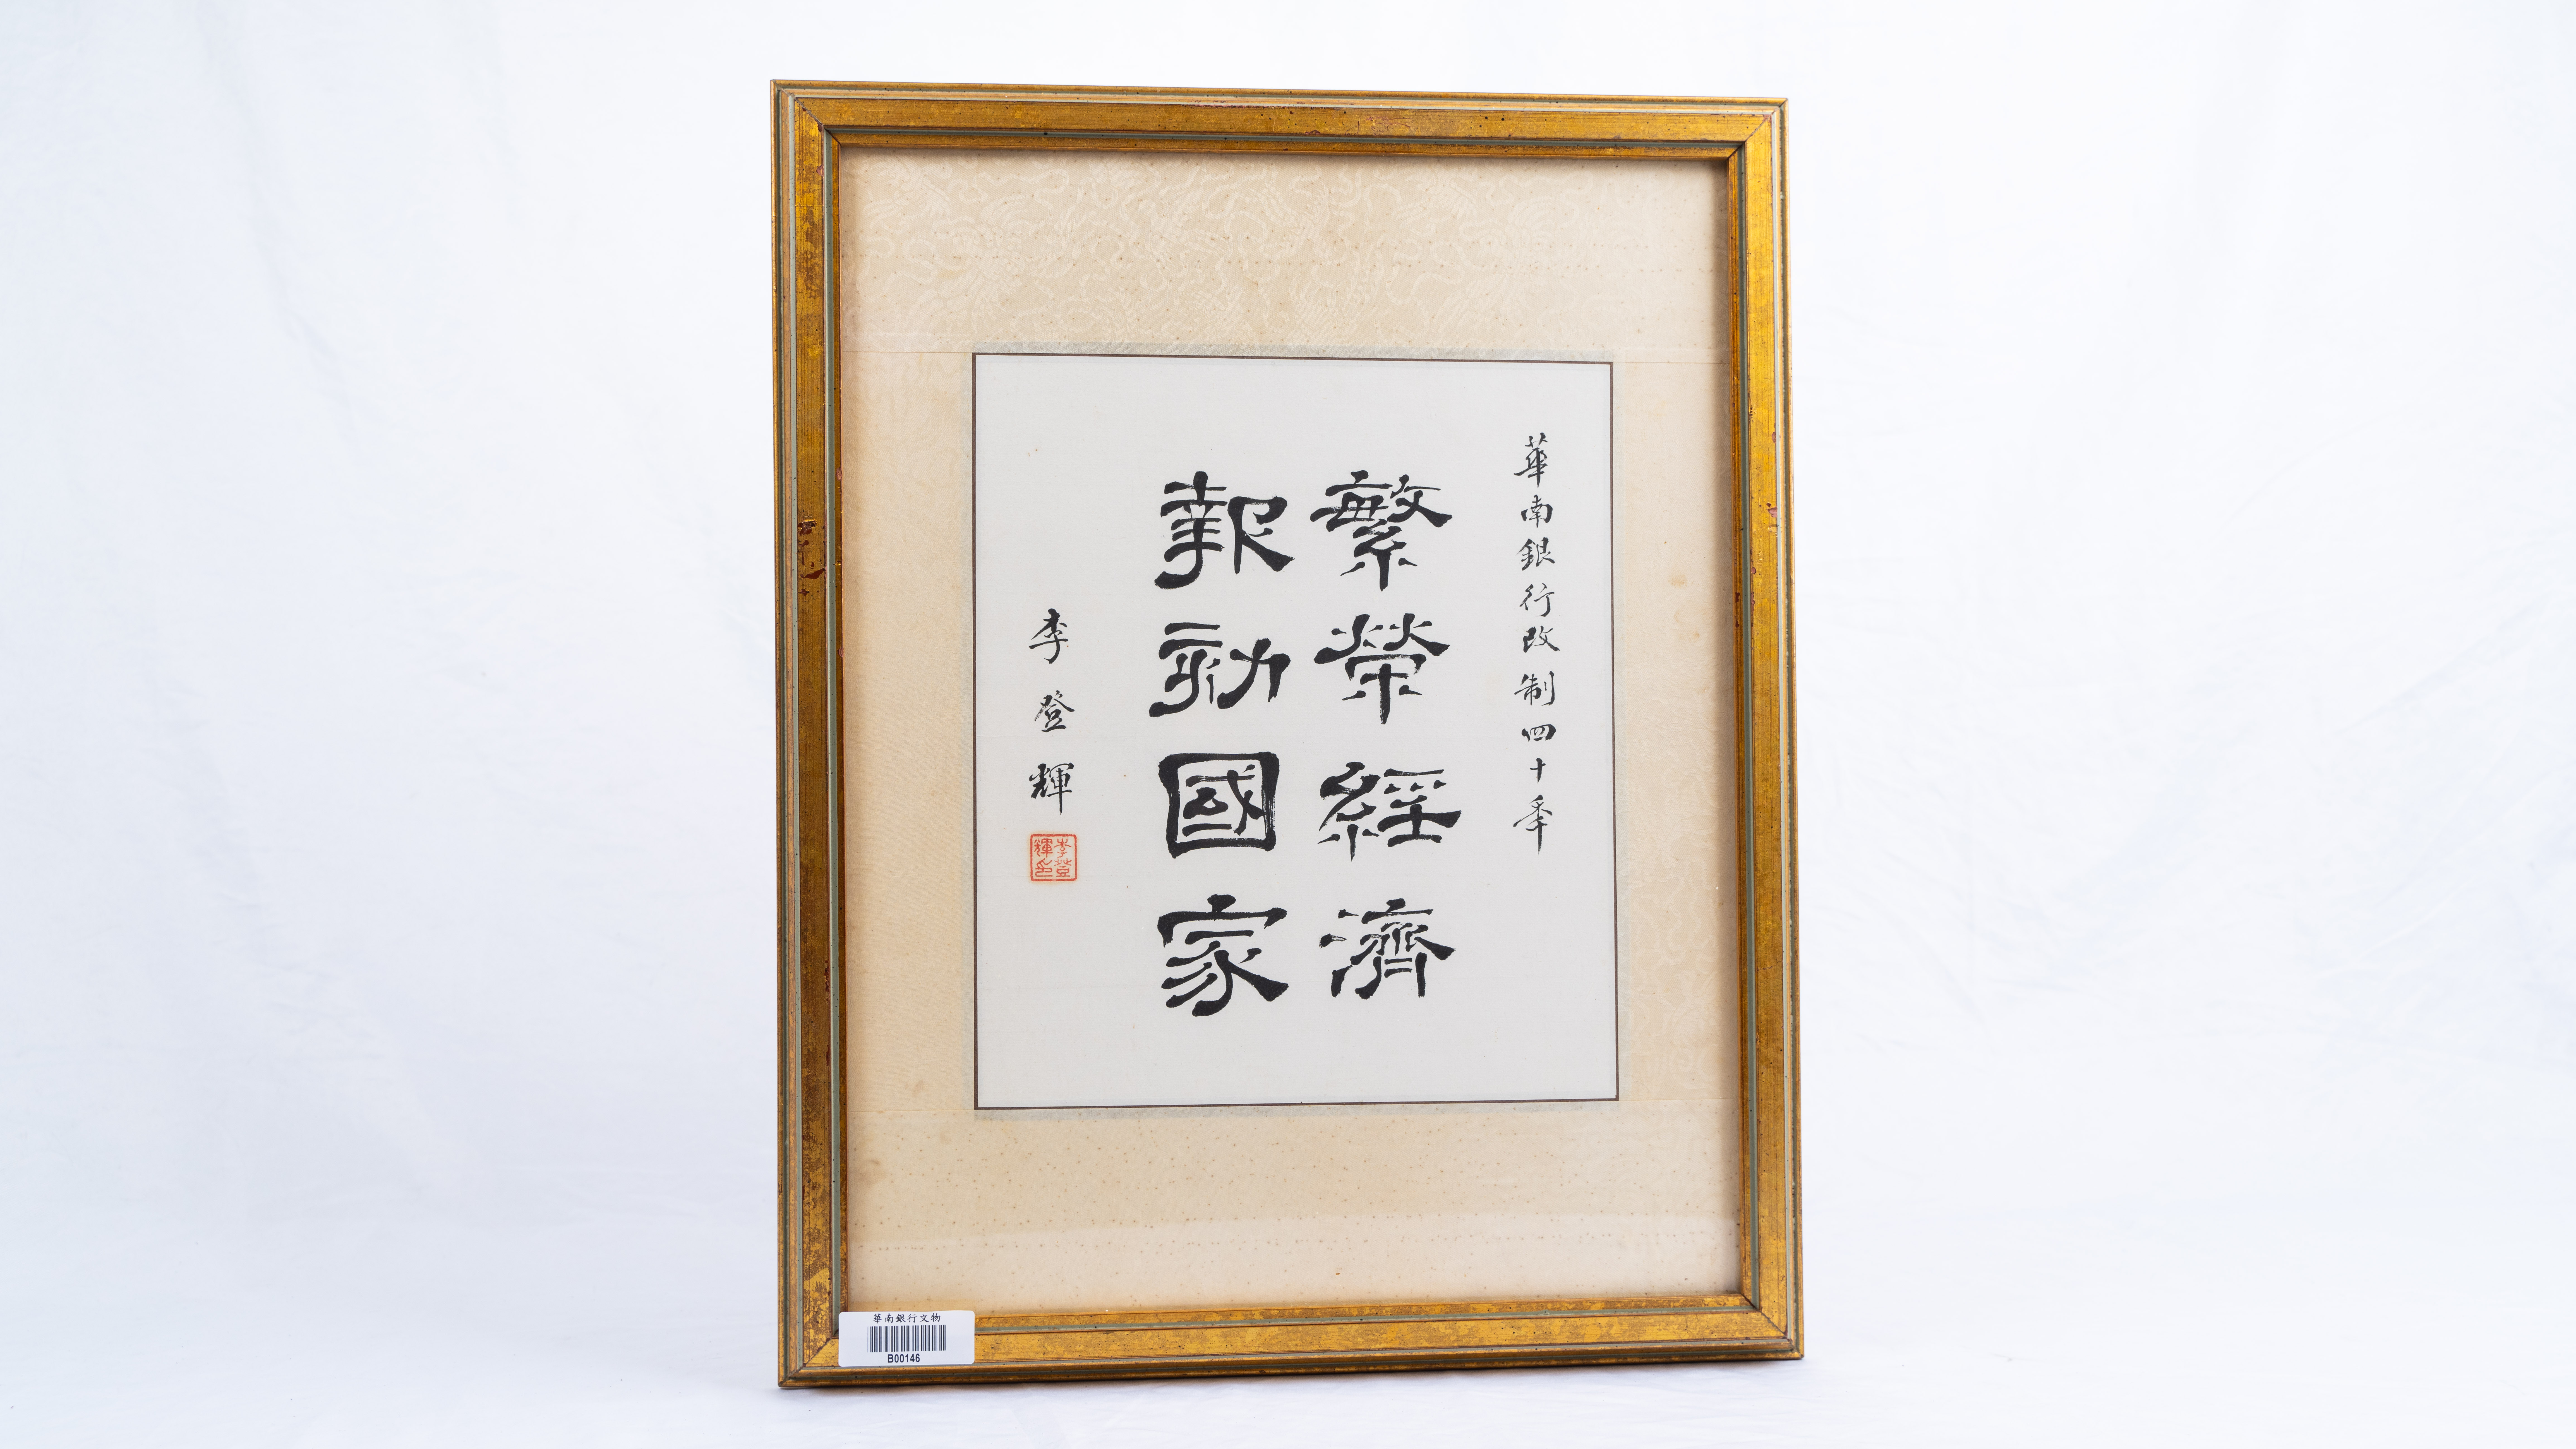 華南銀行改制四十年
繁榮經濟
報効國家
李登輝
李登輝印
華南銀行文物
B00146